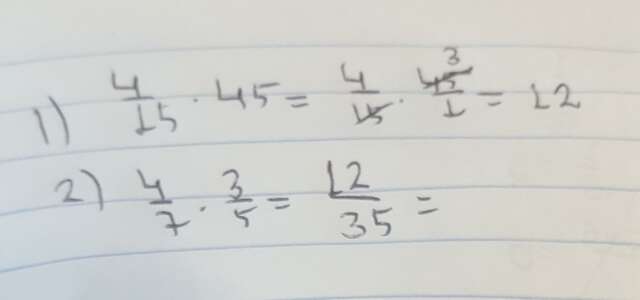 1) 4/15 · 45 = 4/15 · 45 3/1 = 12
2) 4/7 · 3/5 = 12/35 =